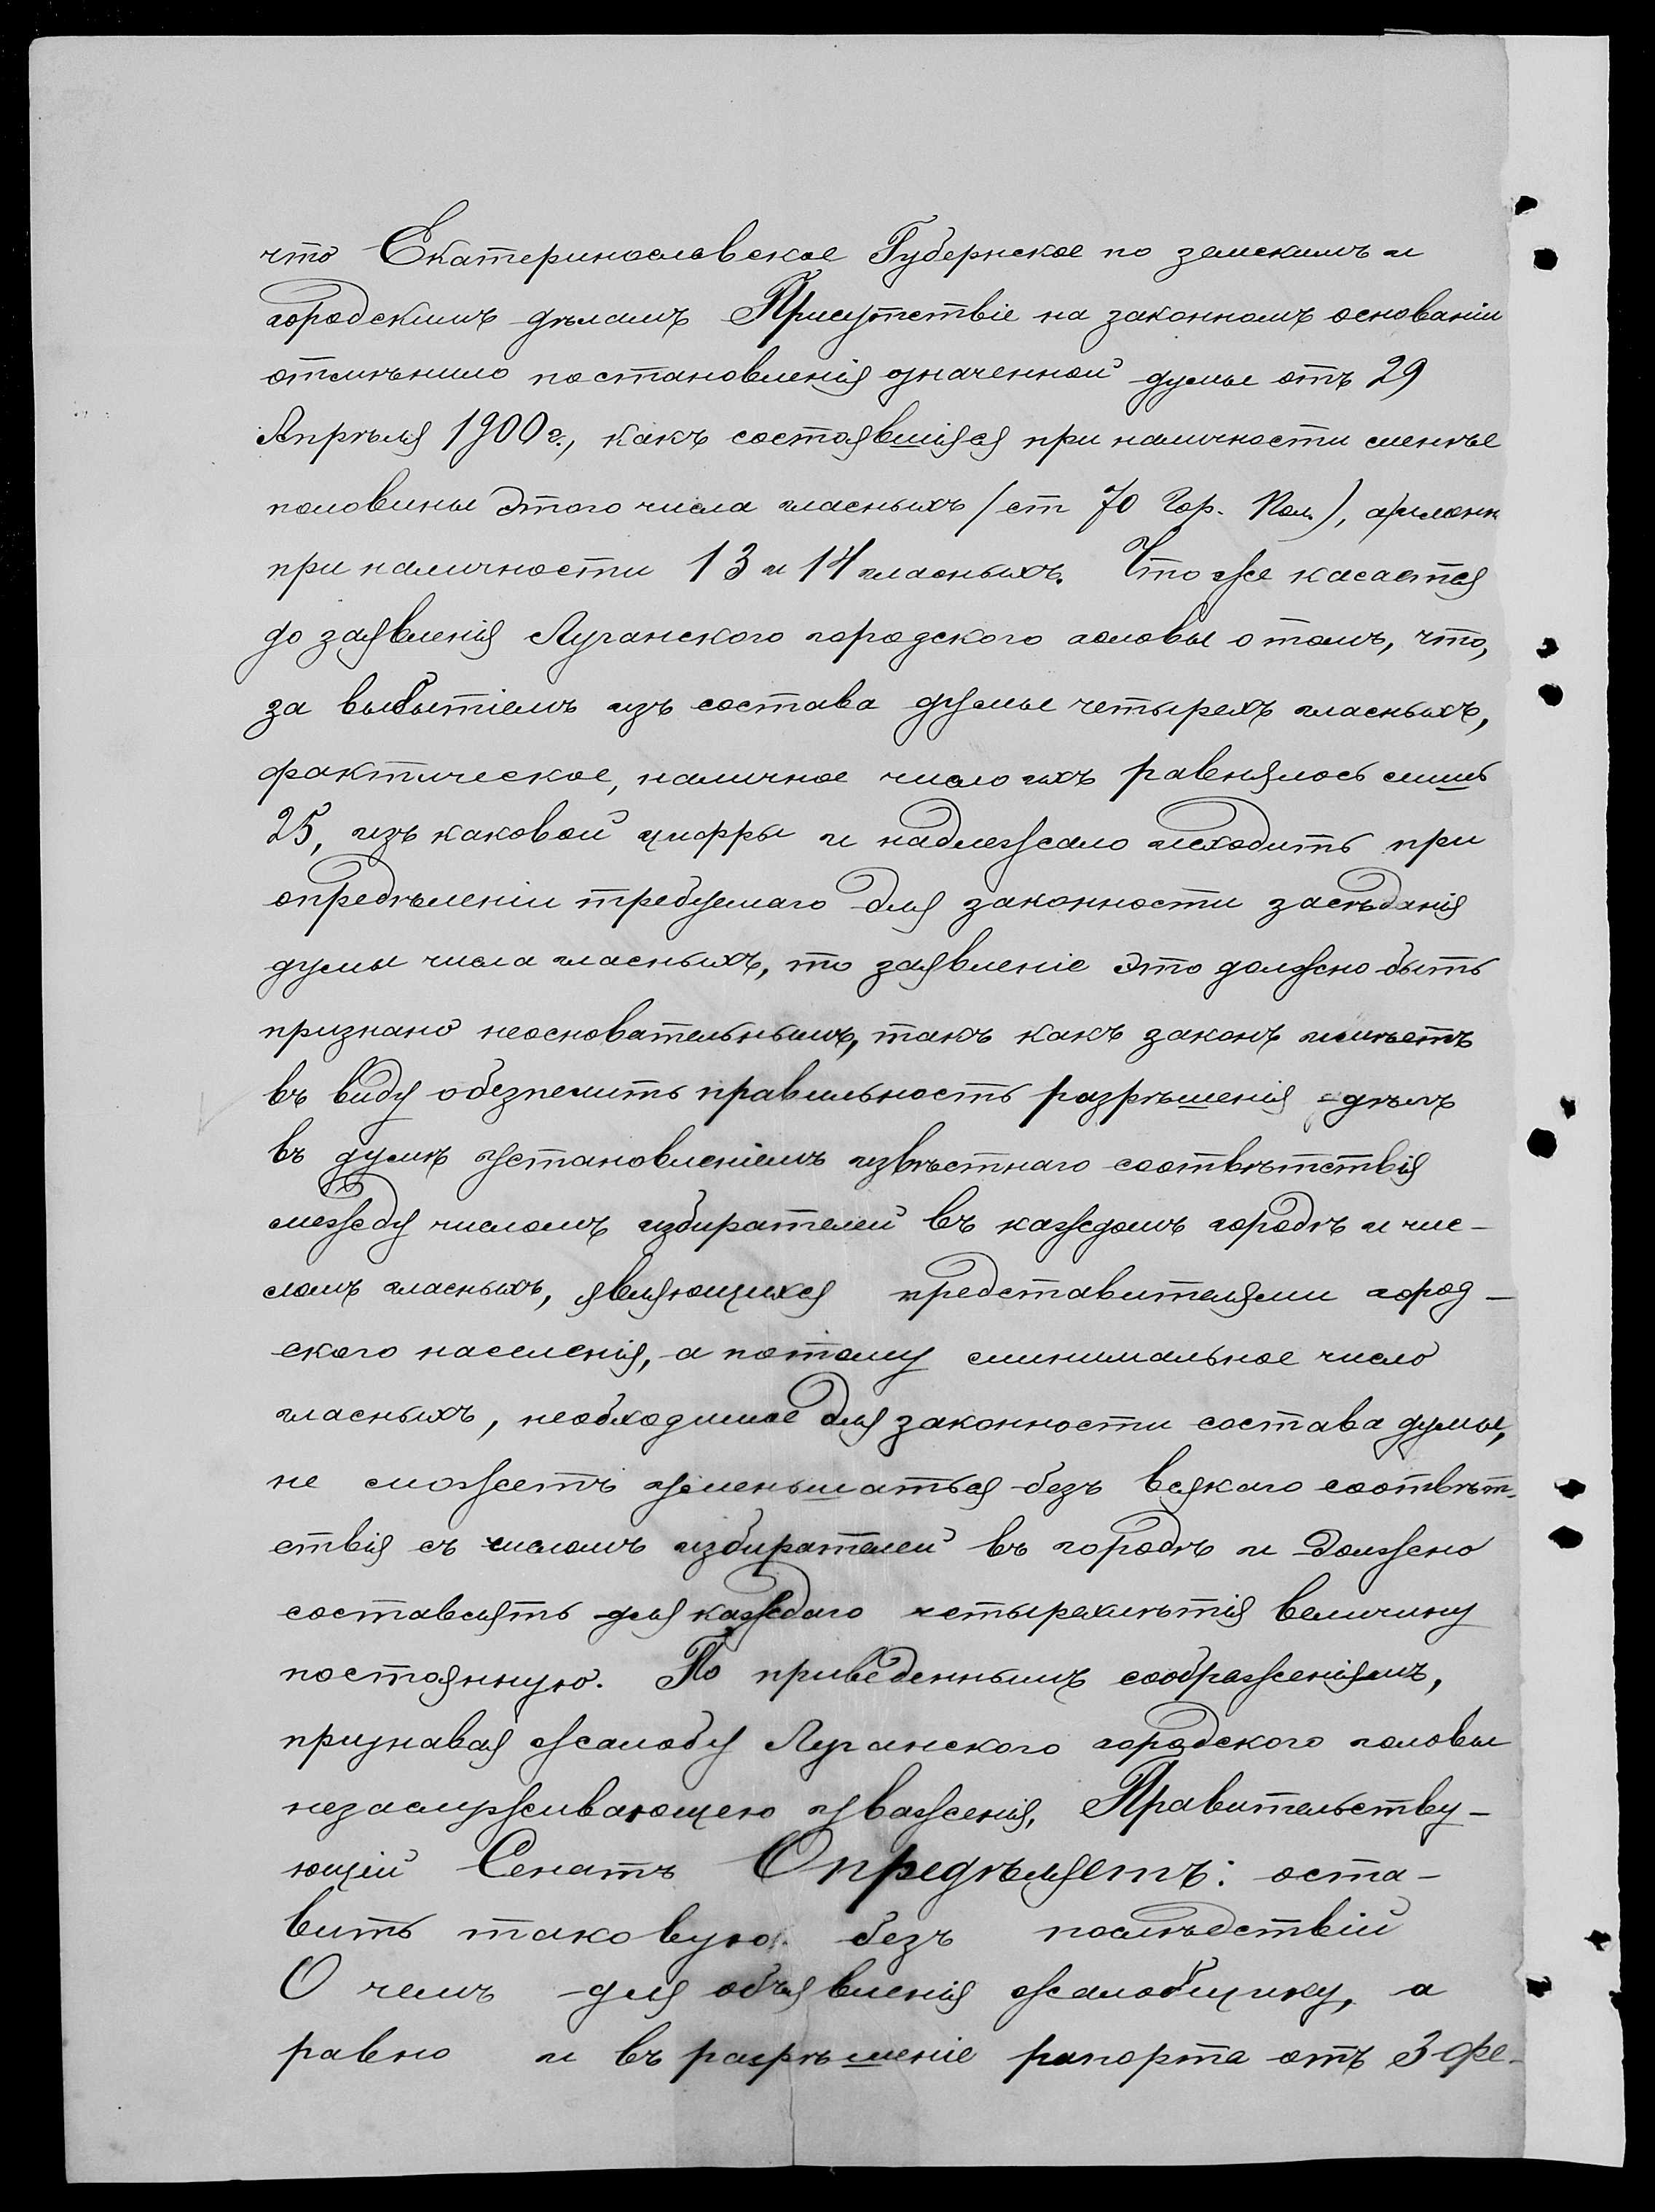 что Екатеринославское Губернское по земскимъ и
городскимъ дѣламъ Присутствіе на законномъ основаніи
отмѣнило постановленія означенной думы отъ 29
Апрѣля 1900 г., какъ состоявшіяся при наличности менѣе
половины этого числа гласныхъ (ст 70 Гор. Пол.), а именн
при наличности 13 и 14 гласныхъ. Что же касается
до заявленія Луганского городского головы о томъ, что,
за выбытіемъ изъ состава думы четырехъ гласныхъ,
фактическое, наличное число ихъ равнялось лишь
25, изъ каковой цифры и надлежало исходить при
опредѣленіи требуемаго для законности засѣданія
думы числа гласныхъ, то заявленіе это должно быть
признано неосновательнымъ, такъ какъ законъ имѣетъ
въ виду обезпечить правильность разрѣшенія дѣлъ
въ думѣ установленіемъ извѣстнаго соотвѣтствія
между числомъ избирателей въ каждомъ городѣ и чис-
ломъ гласныхъ, являющихся представителями город-
ского населенія, а потому минимальное число
гласныхъ, необходимое для законности состава думы,
не можетъ уменьшаться безъ всякаго соотвѣт-
ствія съ числомъ избирателей въ городѣ и должно
составлять для каждаго четырехлѣтія величину
постоянную. По приведеннымъ соображеніямъ,
признавая жалобу Луганского городского головы
незаслуживающею уваженія, Правительству-
ющій Сенатъ Опредѣляетъ: оста-
вить таковую безъ послѣдствій
О чемъ для объявленія жалобщику, а
равно и въ разрѣшеніе рапорта отъ 3 фе-